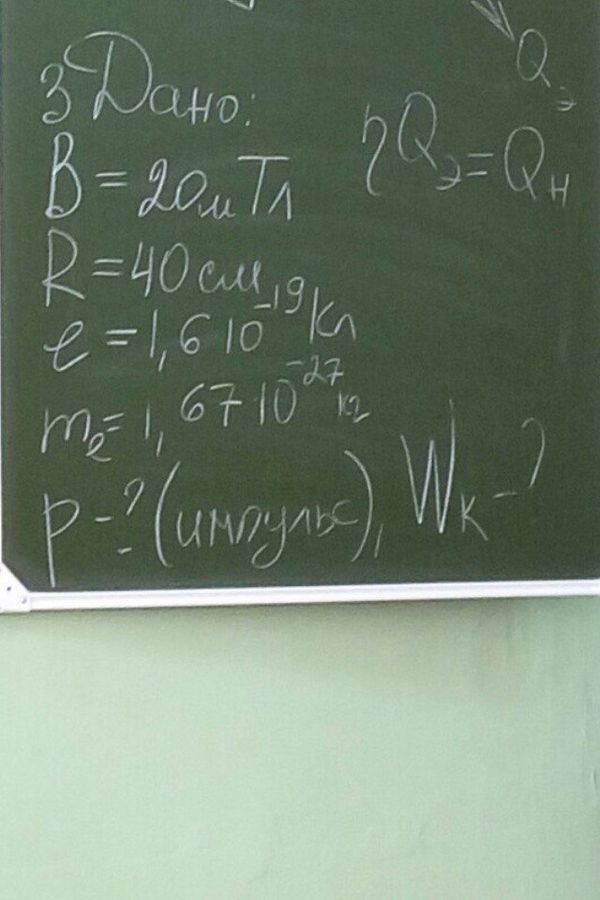 Q_э
3 Дано:
η Q_э = Q_н
B = 20 мТл
R = 40 см
e = 1,6 10^-19 Кл
m_e = 1,67·10^-27 кг
p - ? (импульс), W_к - ?